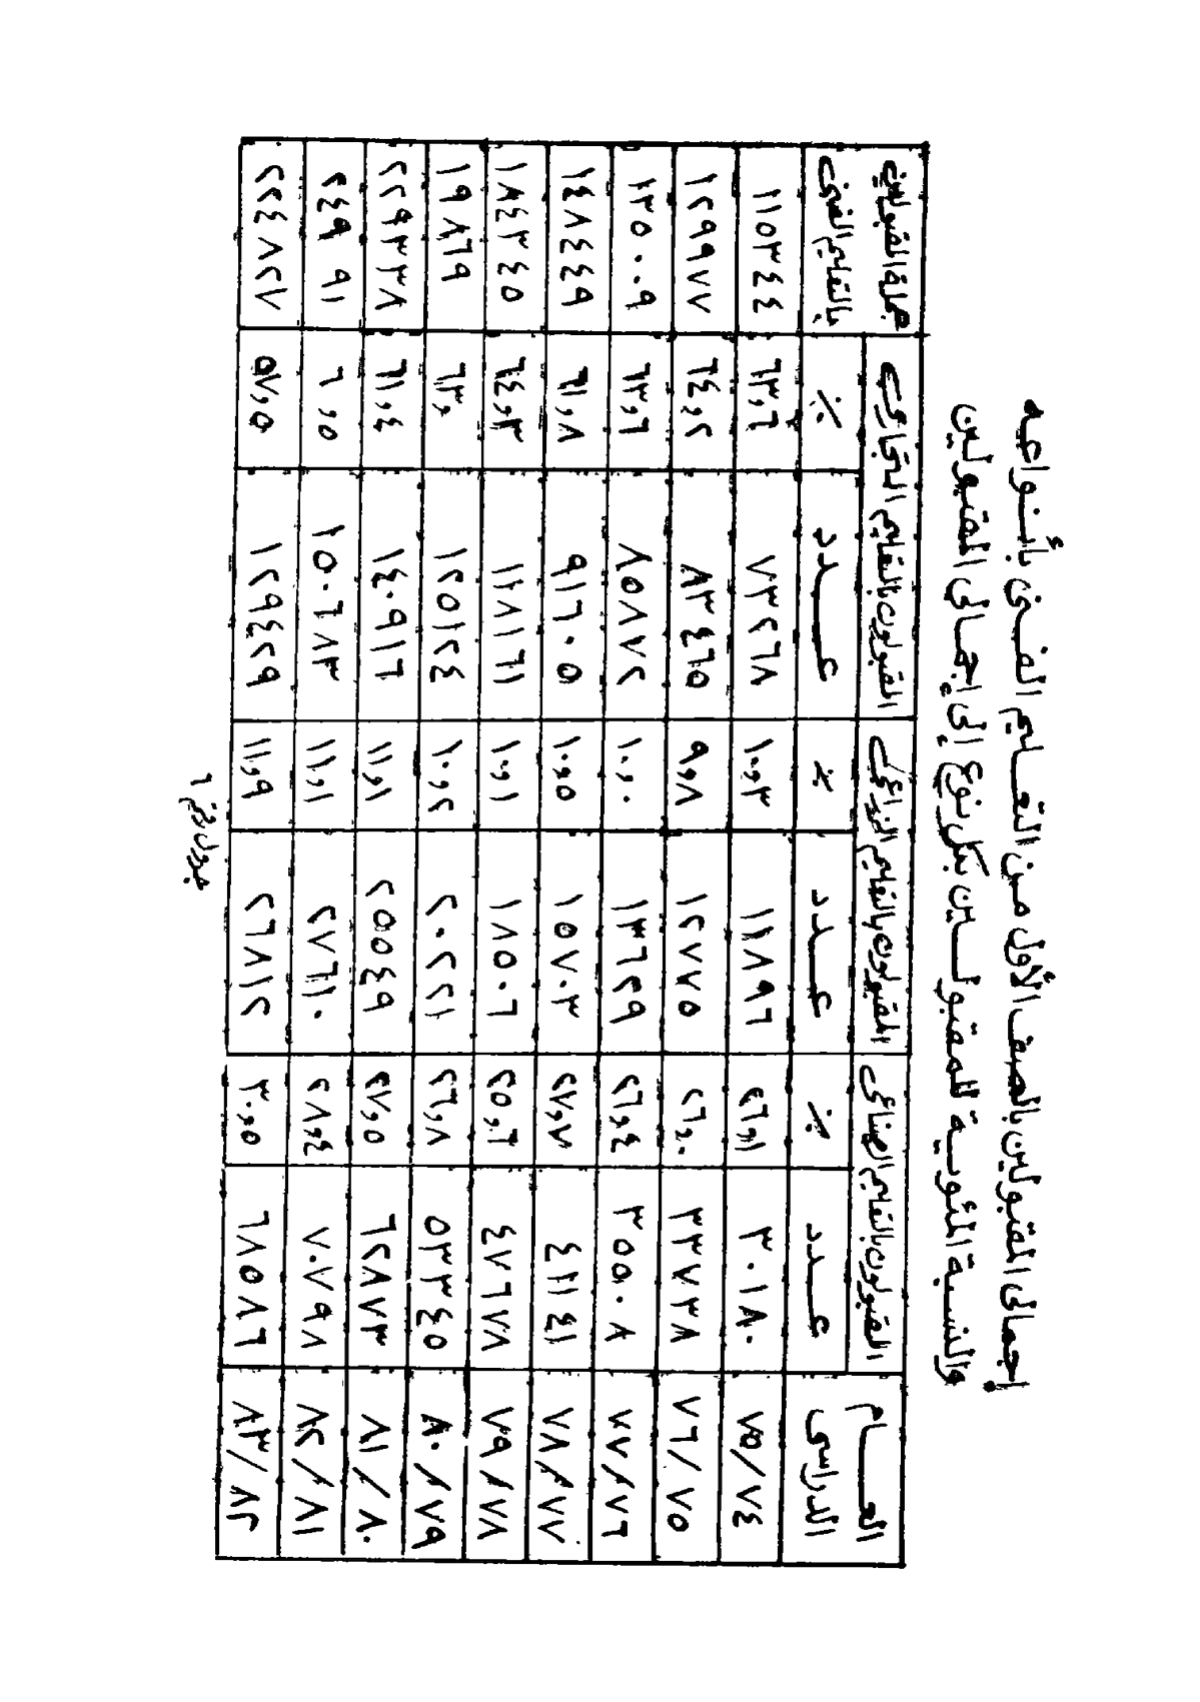 إجمالى المقبولين بالصف الأول من التعليم الفنى بأنواعه
والنسبة المئوية للمقبولين بكل نوع إلى إجمالى المقبولين
العام الدراسى المقبولون بالتعليم الصناعى المقبولون بالتعليم الزراعى المقبولون بالتعليم التجارى جملة المقبولين بالتعليم الفنى
عدد ٪ عدد ٪ عدد ٪
٧٥/٧٤ ٣٠١٨٠ ٢٦,١ ١١٨٩٦ ١٠,٣ ٧٣٢٦٨ ٦٣,٦ ١١٥٣٤٤
٧٦/٧٥ ٣٣٧٣٨ ٢٦,٠ ١٢٧٧٥ ٩,٨ ٨٣٤٦٥ ٦٤,٢ ١٢٩٩٧٧
٧٧/٧٦ ٣٥٥٠٨ ٢٦,٤ ١٣٦٢٩ ١٠,٠ ٨٥٨٧٢ ٦٣,٦ ١٣٥٠٠٩
٧٨/٧٧ ٤١١٤١ ٢٧,٧ ١٥٧٠٣ ١٠,٥ ٩١٦٠٥ ٦١,٨ ١٤٨٤٤٩
٧٩/٧٨ ٤٧٦٧٨ ٢٥,٦ ١٨٥٠٦ ١٠,١ ١١٨١٦١ ٦٤,٣ ١٨٤٣٤٥
٨٠/٧٩ ٥٣٣٤٥ ٢٦,٨ ٢٠٢٢١ ١٠,٢ ١٢٥١٢٤ ٦٣,٠ ١٩٨٦٩
٨١/٨٠ ٦٢٨٧٣ ٢٧,٥ ٢٥٥٤٩ ١١,١ ١٤٠٩١٦ ٦١,٤ ٢٢٩٣٣٨
٨٢/٨١ ٧٠٧٩٨ ٢٨,٤ ٢٧٦١٠ ١١,١ ١٥٠٦٨٣ ٦٠,٥ ٢٤٩٠٩١
٨٣/٨٢ ٦٨٥٨٦ ٣٠,٥ ٢٦٨١٢ ١١,٩ ١٢٩٤٢٩ ٥٧,٥ ٢٢٤٨٢٧
جدول رقم ٦